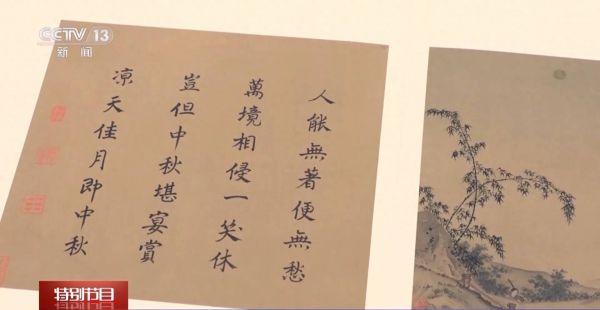 CCTV 13
新闻
人能無著便無愁
萬境相侵一笑休
豈但中秋堪宴賞
凉天佳月即中秋
特别节目